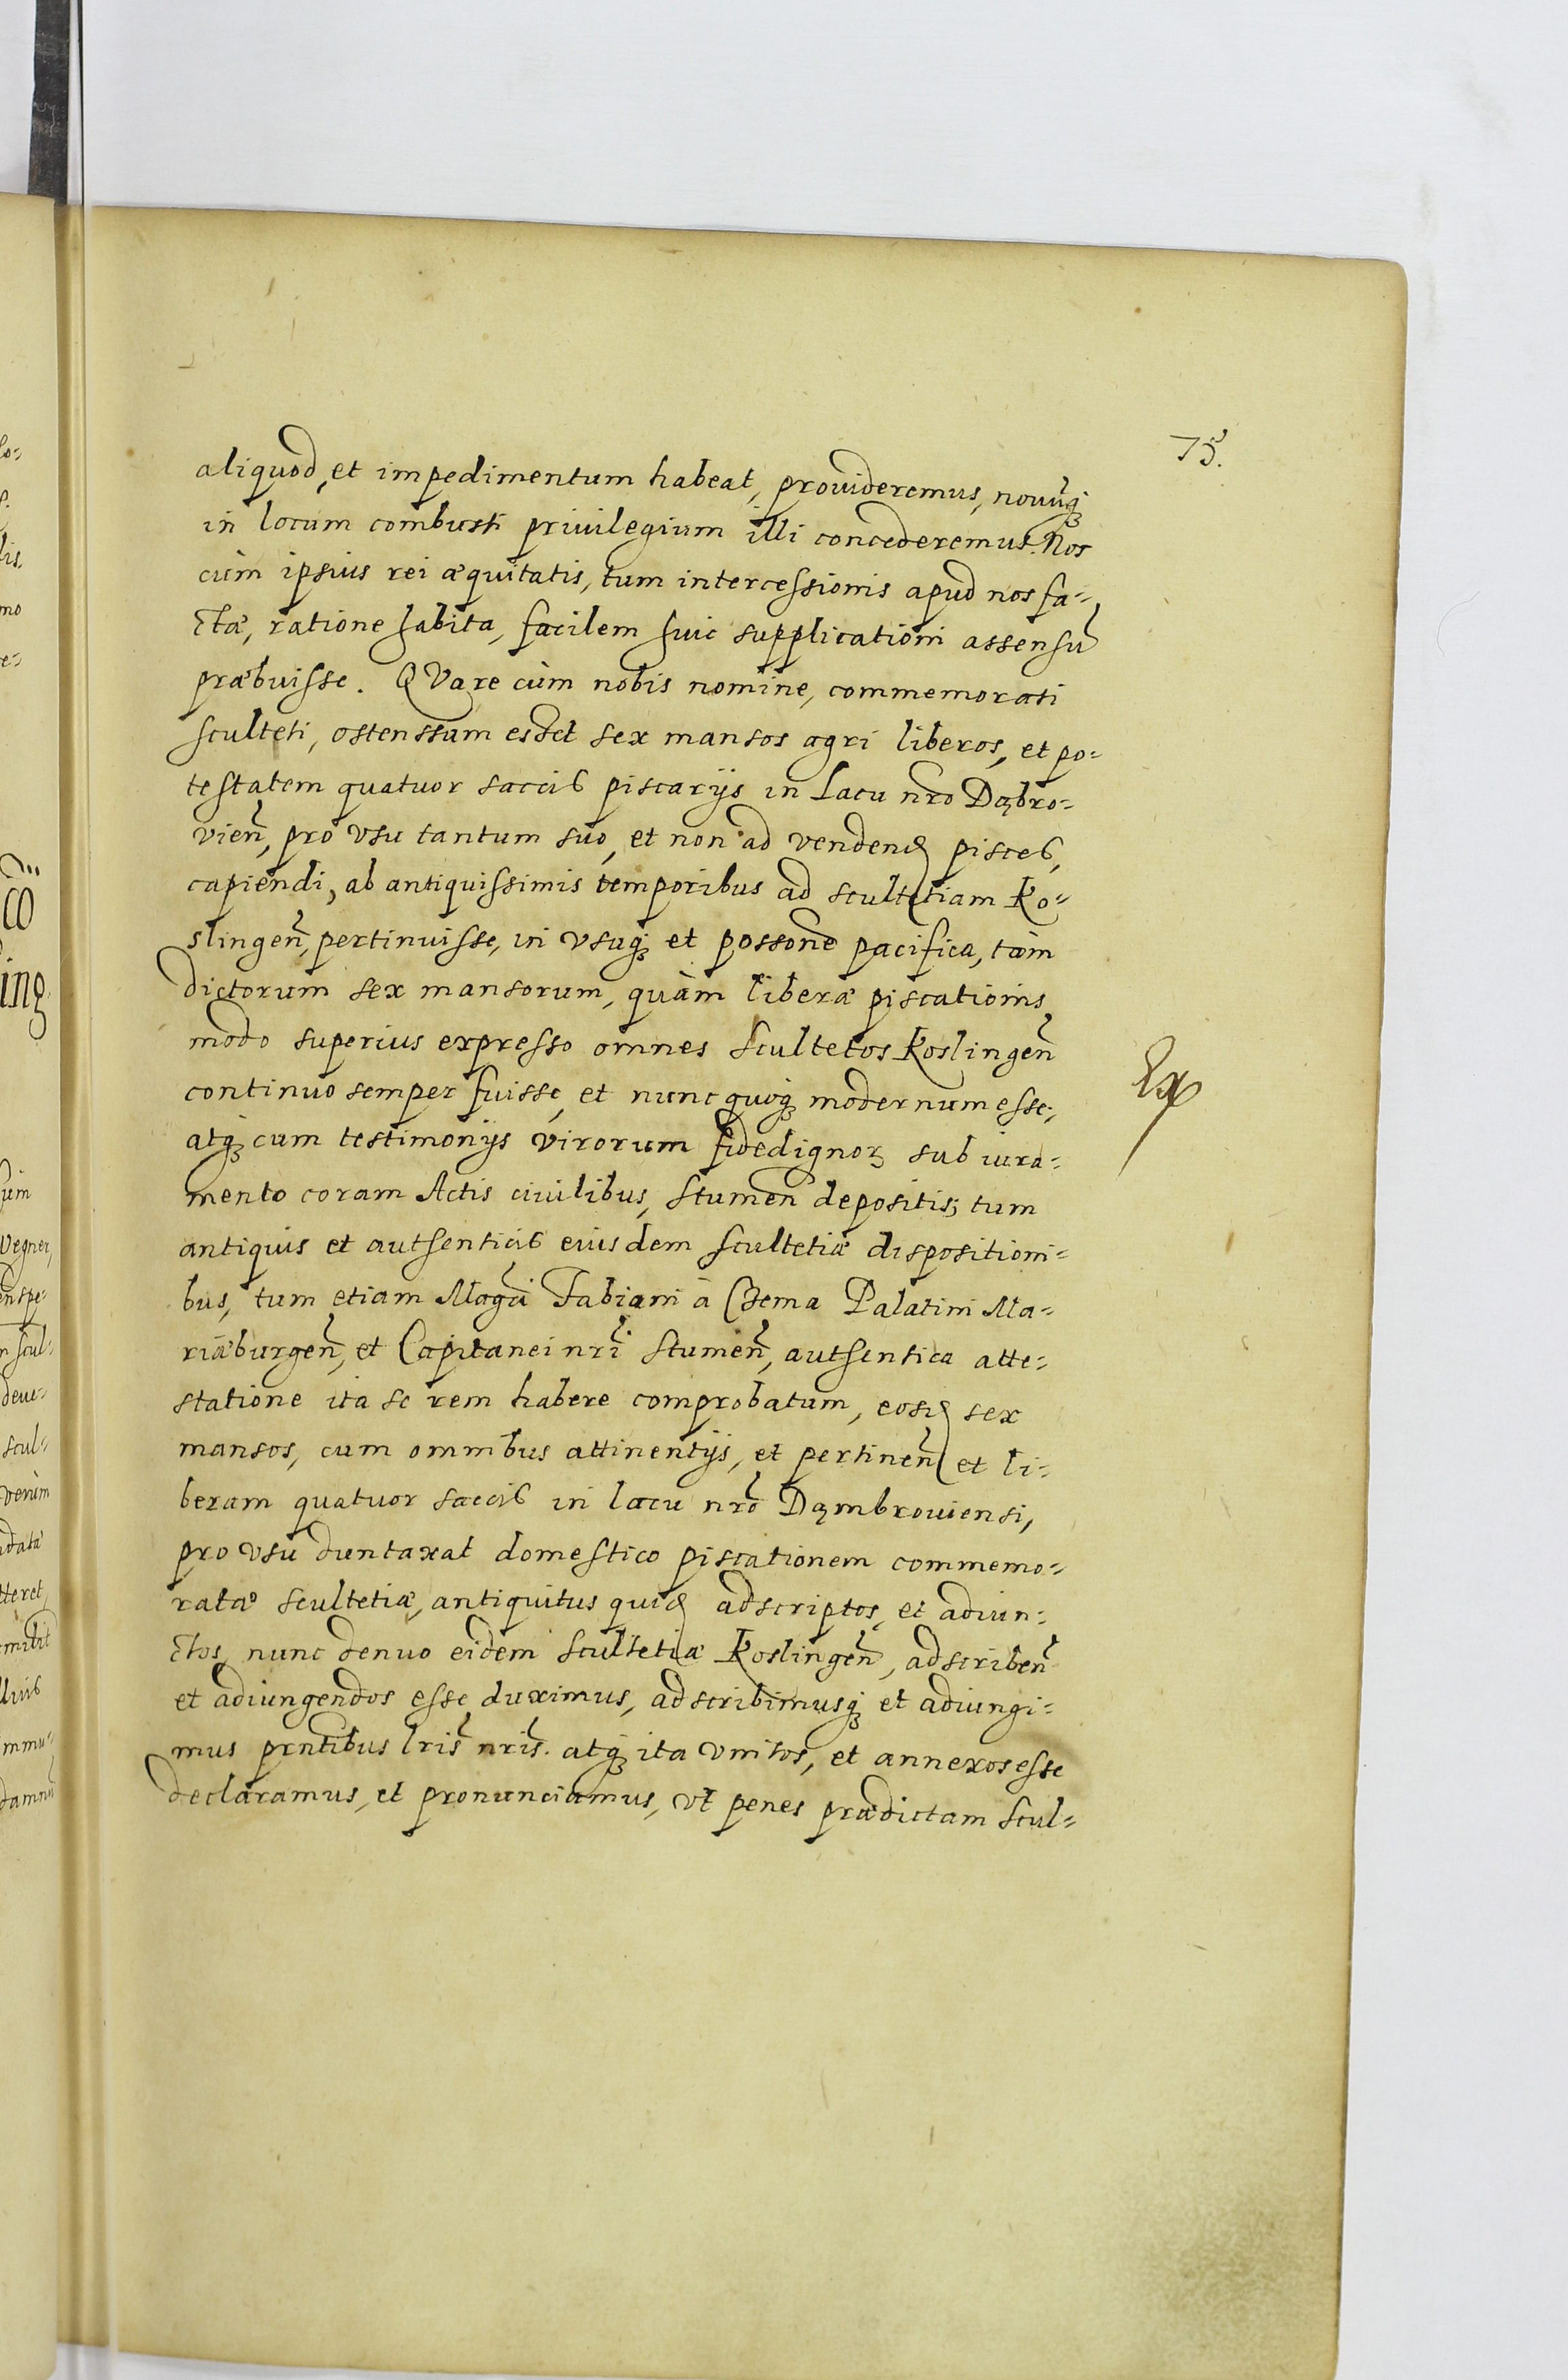 75.
aliquod, et impedimentum habeat, prouideremus, nouũq́
in locum combusti priuilegium illi concederemus. Nos
cùm ipsius rei æquitatis, tum intercessionis apud nos fa=
ctæ, ratione habita, facilem huic supplicationi assensũ
præbuisse. QVare cùm nobis nomine, commemorati
sculteti, ostenssum esset sex mansos agri liberos, et po=
testatem quatuor saccis piscarijs in Lacu nrõ Dąbro=
vieñ, pro vsu tantum suo, et non ad vendend pisces,
capiendi, ab antiquissimis temporibus ad scultetiam Ko=
slingeñ, pertinuisse, in vsuq́ et possone pacifica, tàm
dictorum sex mansorum, quàm liberæ piscationis
modo superius expresso omnes Scultetos Koslingeñ
continuo semper fuisse, et nunc quoq́ modernum esse;
atq́ cum testimonijs virorum fidedignoꝝ sub iura=
mento coram Actis ciuilibus, Stumeñ depositis; tum
antiquis et authenticis eiusdem scultetiæ dispositioni=
bus, tum etiam Magci Fabiani à Czema Palatini Ma=
riæburgeñ, et Capitanei nrĩ Stumeñ, authentica atte=
statione ita se rem habere comprobatum, eosd sex
mansos, cum omnibus attinentijs, et pertineñ et li=
beram quatuor saccis in lacu nrõ Dąmbrouiensi,
pro vsu duntaxat domestico piscationem commemo=
ratæ scultetiæ, antiquitus quid adscriptos, et adiun=
ctos, nunc denuo eidem Scultetiæ Koslingeñ, adscribeñ
et adiungendos esse duximus, adscribimusq́ et adiungi=
mus prñtibus lrĩs nrĩs. atq́ ita vnitos, et annexos esse
declaramus, et pronunciamus, vt penes prædictam Scul=
Ex